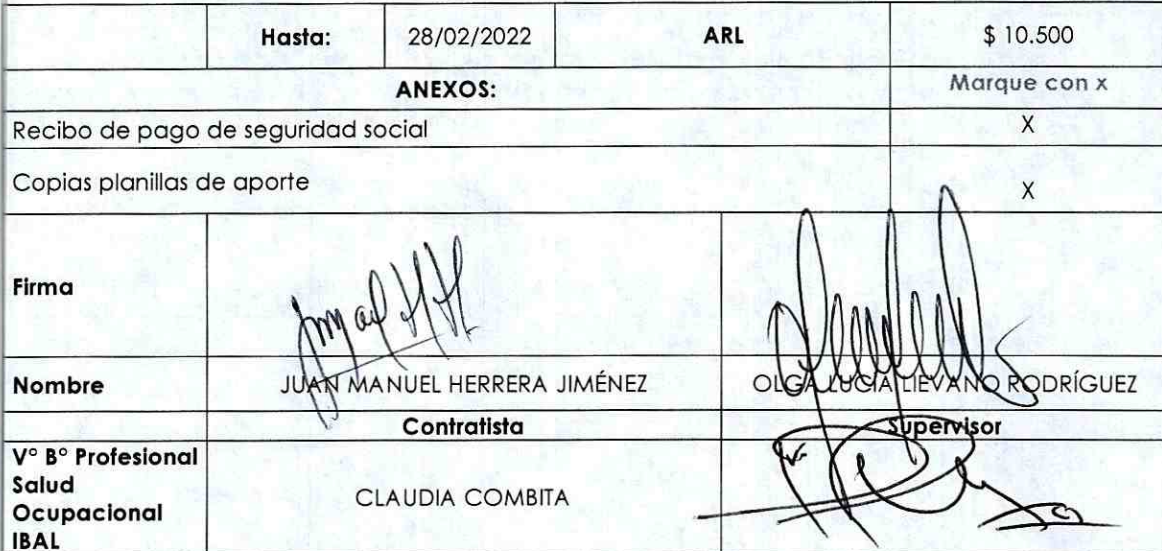 Hasta: 28/02/2022 ARL $ 10.500
ANEXOS: Marque con x
Recibo de pago de seguridad social X
Copias planillas de aporte X
Firma
Nombre JUAN MANUEL HERRERA JIMÉNEZ OLGA LUCIA LIEVANO RODRÍGUEZ
Contratista Supervisor
V° B° Profesional
Salud
Ocupacional
IBAL
CLAUDIA COMBITA